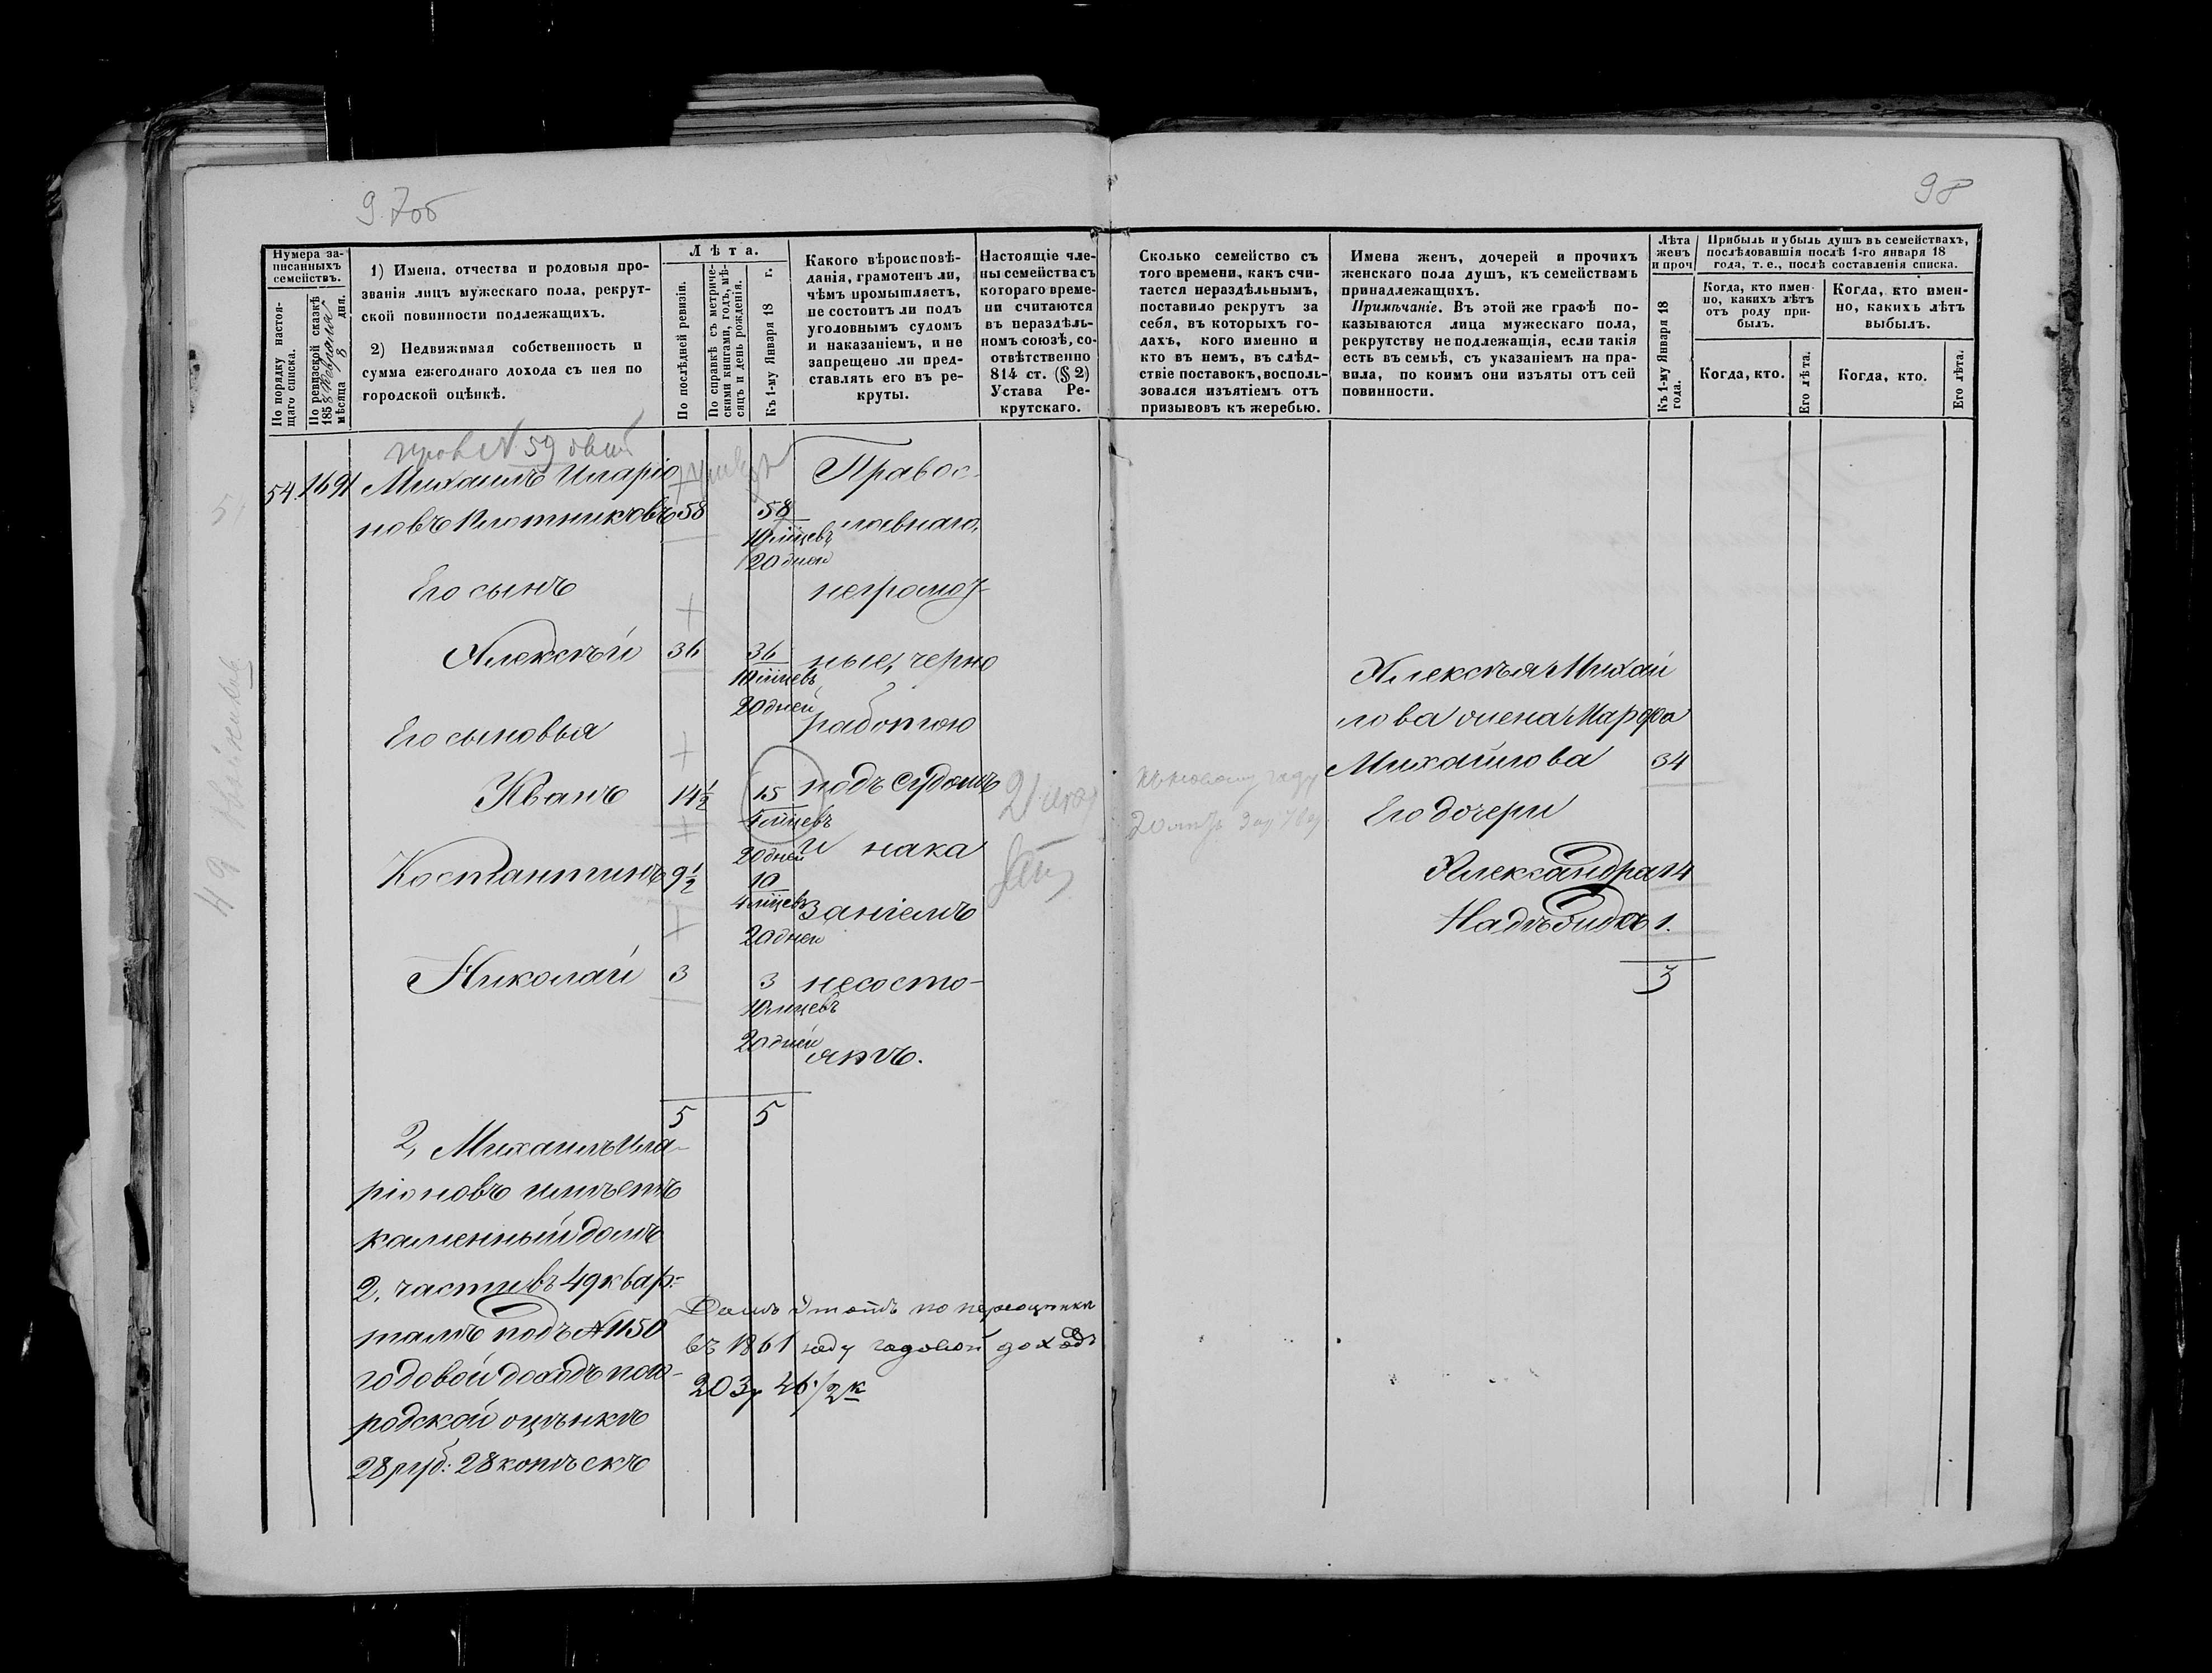 97об
98
Нумера за-
писанныхъ
семействъ.
По порядку настоя-
щаго списка.
По ревизской сказкѣ
1858 Февраля
мѣсяца 8 дня.
1) Имена, отчества и родовыя про-
званія лицъ мужескаго пола, рекрут-
ской повинности подлежащихъ.
2) Недвижимая собственность и
сумма ежегоднаго дохода съ нея по
городской оцѣнкѣ.
Лѣта.
По послѣдней ревизіи.
По справкѣ съ метриче-
скими книгами, годъ, мѣ-
сяцъ и день рожденія.
Къ 1-му Января 18 г.
Какого вѣроисповѣ-
данія, грамотенъ ли,
чѣмъ промышляетъ,
не состоитъ ли подъ
уголовнымъ судомъ
и наказаніемъ, и не
запрещено ли пред-
ставлять его въ ре-
круты.
Настоящіе чле-
ны семейства съ
котораго време-
ни считаются
въ нераздѣль-
номъ союзѣ, со-
отвѣтственно
814 ст. (§ 2)
Устава Ре-
крутскаго.
Сколько семейство съ
того времени, какъ счи-
тается нераздѣльнымъ,
поставило рекрутъ за
себя, въ которыхъ го-
дахъ, кого именно и
кто въ немъ, въ слѣд-
ствіе поставокъ, восполь-
зовался изъятіемъ отъ
призывовъ къ жеребью.
Имена женъ, дочерей и прочихъ
женскаго пола душъ, къ семействамъ
принадлежащихъ.
Примѣчаніе. Въ этой же графѣ по-
казываются лица мужескаго пола,
рекрутству не подлежащія, если такія
есть въ семьѣ, съ указаніемъ на пра-
вила, по коимъ они изъяты отъ сей
повинности.
Лѣта
женъ
и проч
Къ 1-му Января 18
года.
Прибыль и убыль душъ въ семействахъ,
послѣдовавшія послѣ 1-го января 18
года, т. е., послѣ составленія списка.
Когда, кто имен-
но, какихъ лѣтъ
отъ роду при-
былъ.
Когда, кто имен-
но, какихъ лѣтъ
выбылъ.
Когда, кто.
Его лѣта.
Когда, кто.
Его лѣта.
№ 59
54. 1691 Михаилъ Иларіо
новъ Плотниковъ 58 58
10 мцевъ
20 дней
Его сынъ
Алексѣй 36 36
10 мцевъ
20 дней
Его сыновья
Иванъ 14½ 15
4 мцевъ
20 дней
Костантинъ 9½ 10
4 мцевъ
20 дней
Николай 3 3
10 мцевъ
20 дней
5 5
Правос-
лавнаго,
неграмот-
ные, черно
работою
подъ судомъ
и нака
заніемъ
несосто-
ятъ.
2, Михаилъ Ила-
ріоновъ имѣетъ
каменный домъ
2. части въ 49 квар-
талѣ подъ № 1150
годовой доходъ по го-
родской оцѣнкѣ
28 руб: 28 копѣекъ
Домъ этотъ по переоценки
въ 1861 году годовой доходъ
203р 46 1/2 к
Алексѣя Михай
лова жена Марфа
Михайлова 34
Его дочери
Александра 14
Надѣжда 1.
3